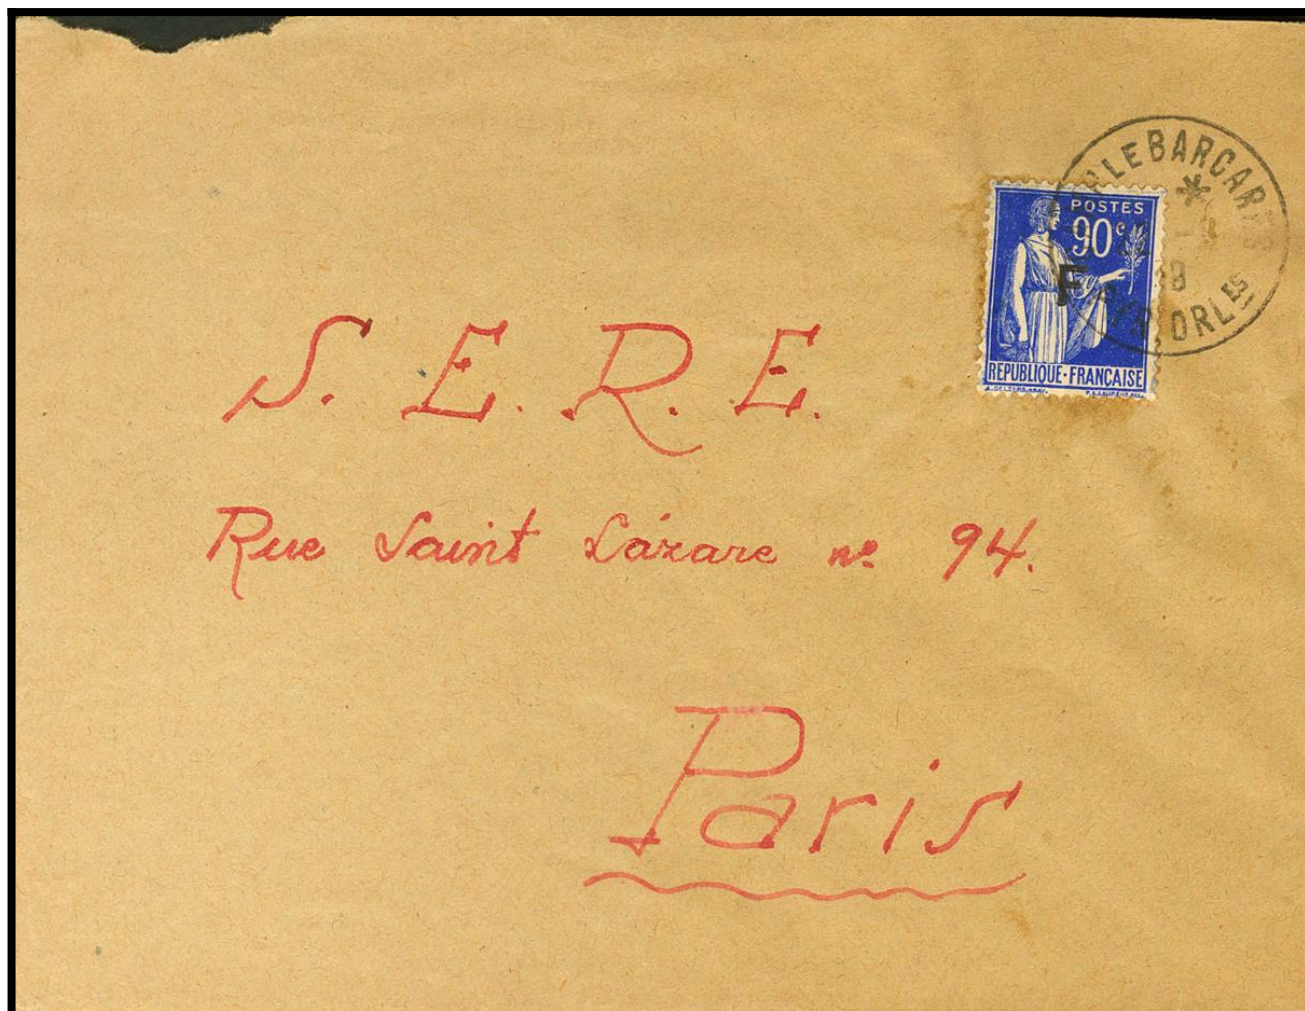 LE BARCARÈS
*
38
PYR. ORLES
POSTES
90c
F
REPUBLIQUE·FRANCAISE
S. E. R. E.
Rue Saint Lázare nº 94.
Paris